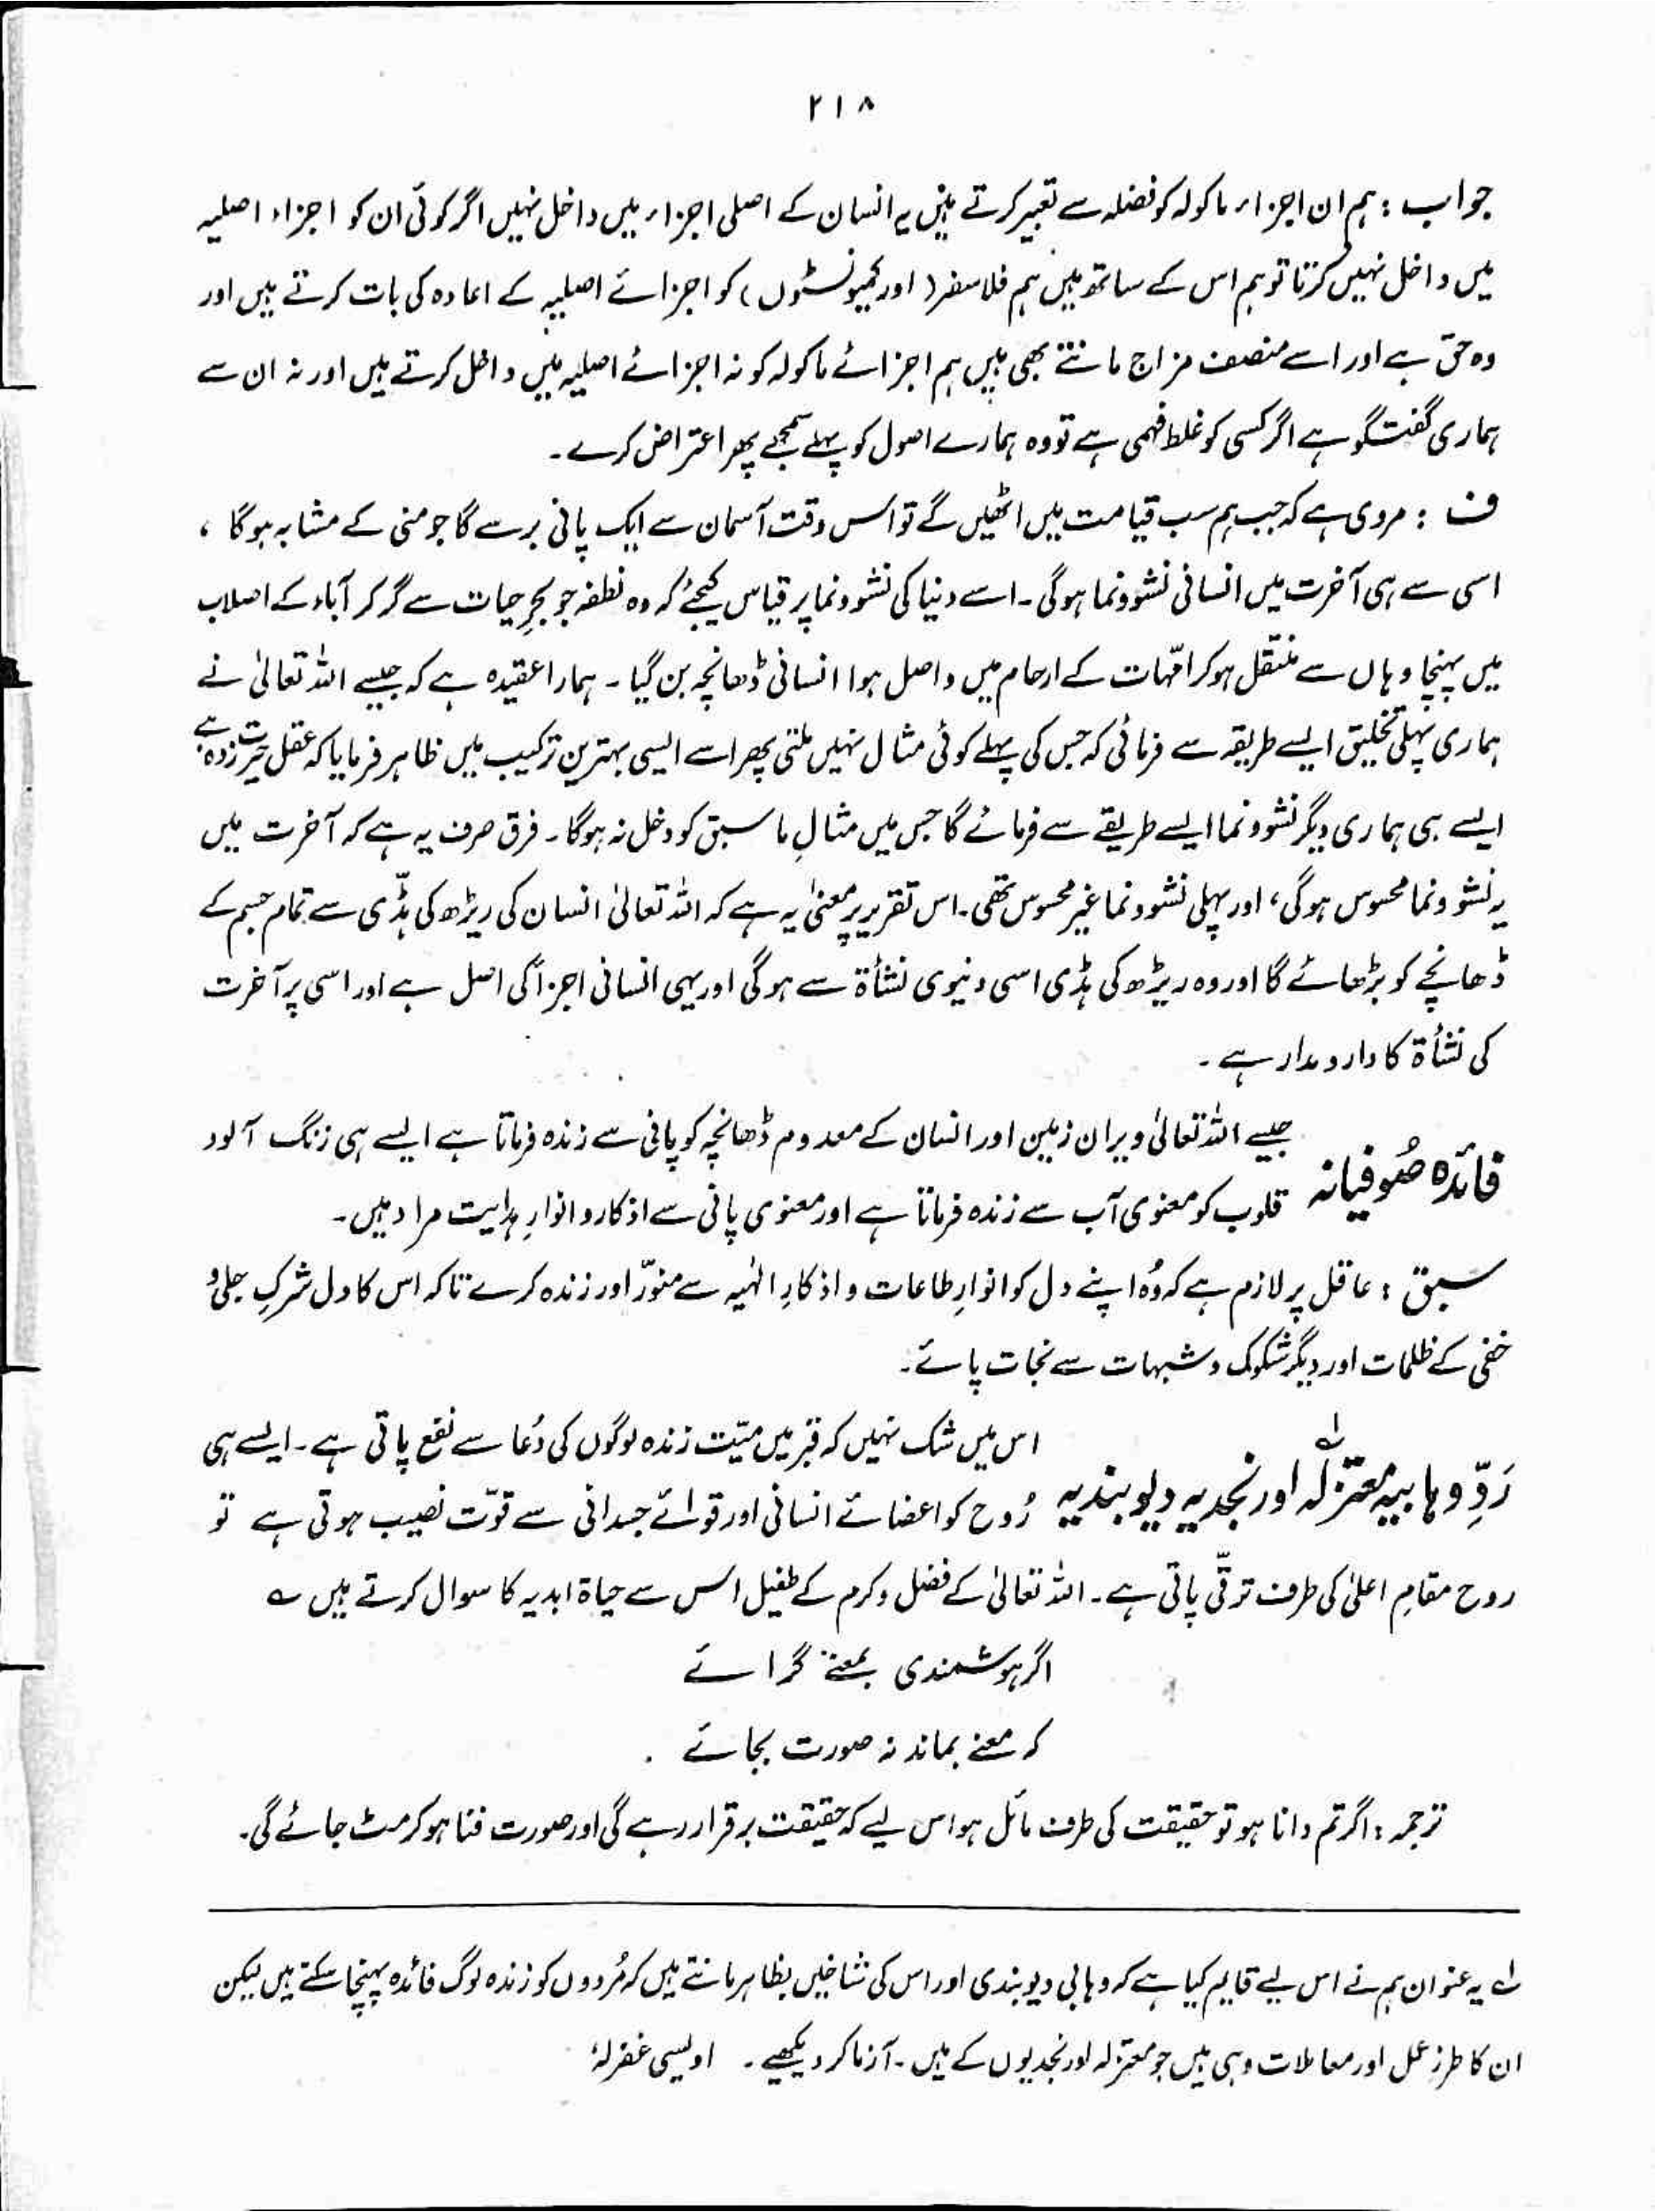 ۲۱۸
جواب : ہم ان اجزاء ماکولہ کو فضلہ سے تعبیر کرتے ہیں یہ انسان کے اصلی اجزاء میں داخل نہیں اگر کوئی ان کو اجزاء اصلیہ
میں داخل نہیں کرتا تو ہم اس کے ساتھ ہیں ہم فلاسفر (اور کمیونسٹوں) کو اجزائے اصلیہ کے اعادہ کی بات کرتے ہیں اور
وہ حق ہے اور اسے منصف مزاج مانتے بھی ہیں ہم اجزائے ماکولہ کو نہ اجزائے اصلیہ میں داخل کرتے ہیں اور نہ ان سے
ہماری گفتگو ہے اگر کسی کو غلط فہمی ہے تو وہ ہمارے اصول کو پہلے سمجھے پھر اعتراض کرے ۔
ف : مروی ہے کہ جب ہم سب قیامت میں اٹھیں گے تو اس وقت آسمان سے ایک پانی برسے گا جو منی کے مشابہ ہوگا ،
اسی سے ہی آخرت میں انسانی نشوونما ہوگی ۔ اسے دنیا کی نشوونما پر قیاس کیجئے کہ وہ نطفہ جو بحرِ حیات سے گر کر آباء کے اصلاب
میں پہنچا وہاں سے منتقل ہو کر امّہات کے ارحام میں واصل ہوا انسانی ڈھانچہ بن گیا ۔ ہمارا عقیدہ ہے کہ جیسے اللہ تعالیٰ نے
ہماری پہلی تخلیق ایسے طریقہ سے فرمائی کہ جس کی پہلے کوئی مثال نہیں ملتی پھر اسے ایسی بہترین ترکیب میں ظاہر فرمایا کہ عقل حیرت زدہ ہے
ایسے ہی ہماری دیگر نشوونما ایسے طریقے سے فرمائے گا جس میں مثالِ ما سبق کو دخل نہ ہوگا ۔ فرق صرف یہ ہے کہ آخرت میں
یہ نشوونما محسوس ہوگی ، اور پہلی نشوونما غیر محسوس تھی ۔ اس تقریر پر معنیٰ یہ ہے کہ اللہ تعالیٰ انسان کی ریڑھ کی ہڈّی سے تمام جسم کے
ڈھانچے کو بڑھائے گا اور وہ ریڑھ کی ہڈی اسی دنیوی نشأۃ سے ہوگی اور یہی انسانی اجزأ کی اصل ہے اور اسی پر آخرت
کی نشأۃ کا دارومدار ہے ۔
فائدہ صُوفیانہ جیسے اللہ تعالیٰ ویران زمین اور انسان کے معدوم ڈھانچہ کو پانی سے زندہ فرماتا ہے ایسے ہی زنگ آلود
قلوب کو معنوی آب سے زندہ فرماتا ہے اور معنوی پانی سے اذکار و انوارِ ہدایت مراد ہیں ۔
سبق : عاقل پر لازم ہے کہ وُہ اپنے دل کو انوارِ طاعات و اذکارِ الٰہیہ سے منوّر اور زندہ کرے تاکہ اس کا دل شرکِ جلی و
خفی کے ظلمات اور دیگر شکوک و شبہات سے نجات پائے ۔
رَدِّ وہابیہ معتزلہ اور نجدیہ دیوبندیہ لہ اس میں شک نہیں کہ قبر میں میّت زندہ لوگوں کی دُعا سے نفع پاتی ہے ۔ ایسے ہی
رُوح کو اعضائے انسانی اور قوائے جسدانی سے قوّت نصیب ہوتی ہے تو
روح مقامِ اعلیٰ کی طرف ترقّی پاتی ہے ۔ اللہ تعالیٰ کے فضل و کرم کے طفیل اس سے حیاۃ ابدیہ کا سوال کرتے ہیں ؎
اگر ہوشمندی بمعنے گرائے
کہ معنے بماند نہ صورت بجائے .
ترجمہ : اگر تم دانا ہو تو حقیقت کی طرف مائل ہو اس لیے کہ حقیقت برقرار رہے گی اور صورت فنا ہو کر مٹ جائے گی ۔
لہ یہ عنوان ہم نے اس لیے قایم کیا ہے کہ وہابی دیوبندی اور اس کی شاخیں بظاہر مانتے ہیں کہ مُردوں کو زندہ لوگ فائدہ پہنچا سکتے ہیں لیکن
ان کا طرز عمل اور معاملات وہی ہیں جو معتزلہ اور نجدیوں کے ہیں ۔ آزما کر دیکھیے ۔ اویسی غفرلہٗ